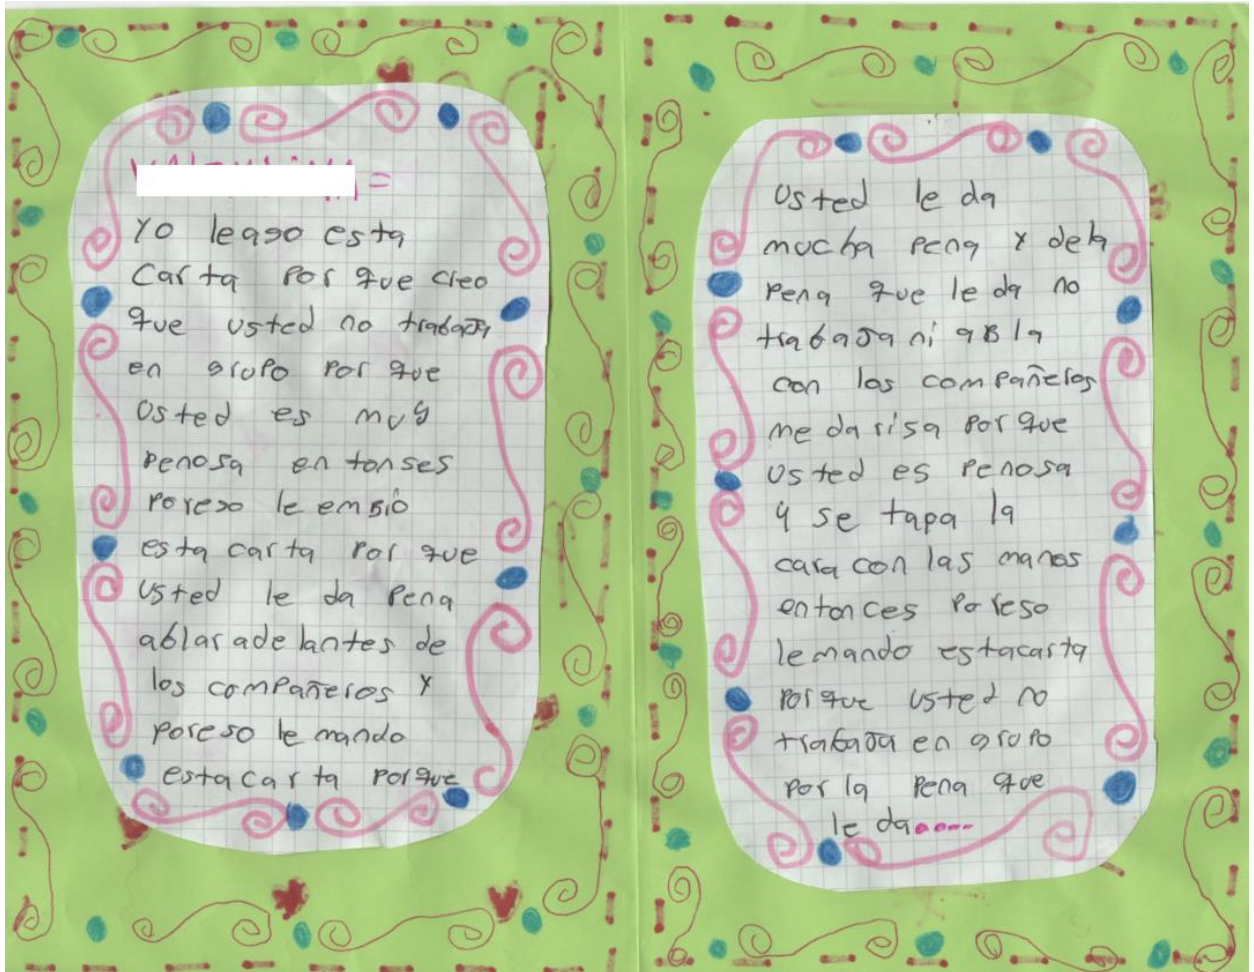 Yo leago esta
Carta Por que creo
que usted no trabaja
en grupo por que
Usted es muy
penosa entonses
poreso le embio
esta carta Por que
Usted le da Pena
ablar adelantes de
los compañeros y
poreso le mando
esta carta porque
Usted le da
mucha pena y dela
pena que le da no
trabaja ni abla
con los compañeros
me da risa porque
Usted es penosa
y se tapa la
cara con las manos
entonces poreso
le mando estacarta
porque usted no
trabaja en grupo
por la pena que
le da....